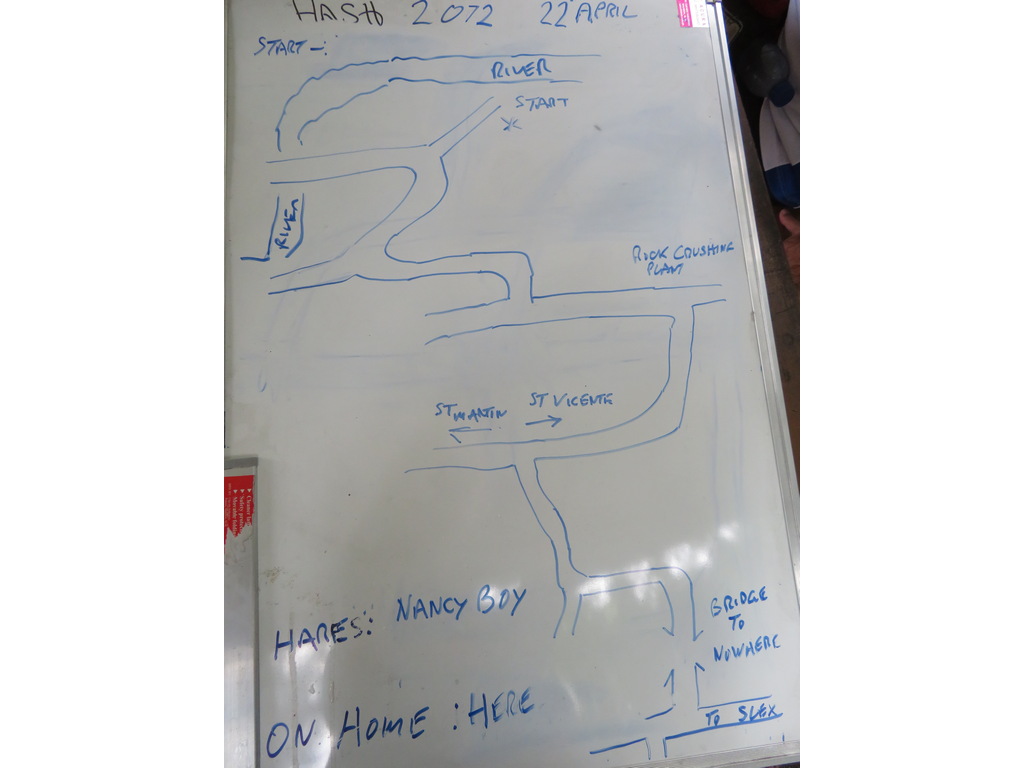 HASH 2072 22 APRIL
START -:
RIVER
START
RIVER
ROCK CRUSHING
PLANT
ST MARTIN
ST VICENTE
HARES: NANCY BOY
BRIDGE
TO
NOWHERE
ON HOME : HERE
TO SLEX